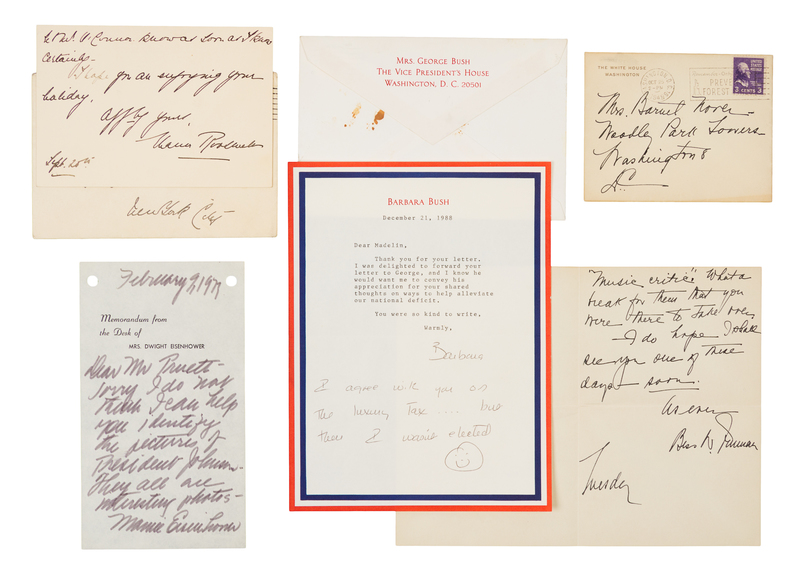 let Mrs. O'Connor know as soon as I know
certainly -
I hope you are enjoying your
holiday,
Aff'ly yours,
Roosevelt
Sept. 20th
New York City
MRS. GEORGE BUSH
THE VICE PRESIDENT'S HOUSE
WASHINGTON, D. C. 20501
THE WHITE HOUSE
WASHINGTON
PREV
FOREST
UNITED STATES POSTAGE
3 CENTS 3
Mrs. Barnet Nover -
Woodley Park Towers -
Washington 8
D.C.
BARBARA BUSH
December 21, 1988
Dear Madelin,
Thank you for your letter.
I was delighted to forward your
letter to George, and I know he
would want me to convey his
appreciation for your shared
thoughts on ways to help alleviate
our national deficit.
You were so kind to write.
Warmly,
Barbara
I agree with you on
the luxury tax .... but
then I wasn't elected
February 2, 1971
Memorandum from
the Desk of
MRS. DWIGHT EISENHOWER
Dear Mr Pruett -
Sorry I do not
think I can help
you identify
the pictures of
President Johnson -
They all are
interesting photos -
Mamie Eisenhower
"music critic". What a
break for them that you
were there to take over.
- I do hope I shall
see you one of these
days - soon.
As ever
Bess W. Truman
Tuesday